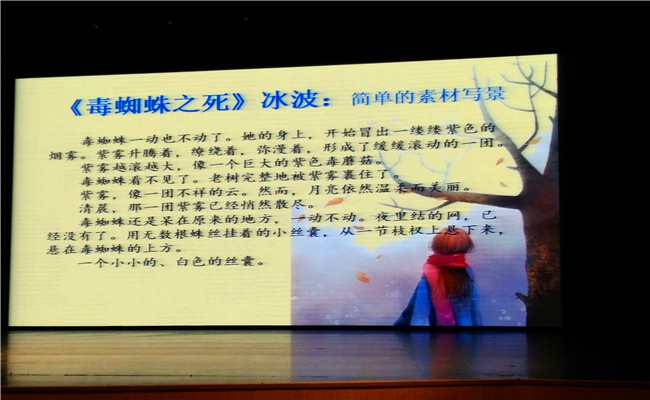 《毒蜘蛛之死》冰波：简单的素材写景
毒蜘蛛一动也不动了。她的身上，开始冒出一缕缕紫色的
烟雾。紫雾升腾着，缭绕着，弥漫着，形成了缓缓滚动的一团。
紫雾越滚越大，像一个巨大的紫色毒蘑菇。
毒蜘蛛看不见了。老树完整地被紫雾裹住了。
紫雾，像一团不祥的云。然而，月亮依然温柔而美丽。
清晨，那一团紫雾已经悄然散尽。
毒蜘蛛还是呆在原来的地方，一动不动。夜里结的网，已
经没有了。用无数根蛛丝挂着的小丝囊，从一节枝杈上悬下来，
悬在毒蜘蛛的上方。
一个小小的、白色的丝囊。